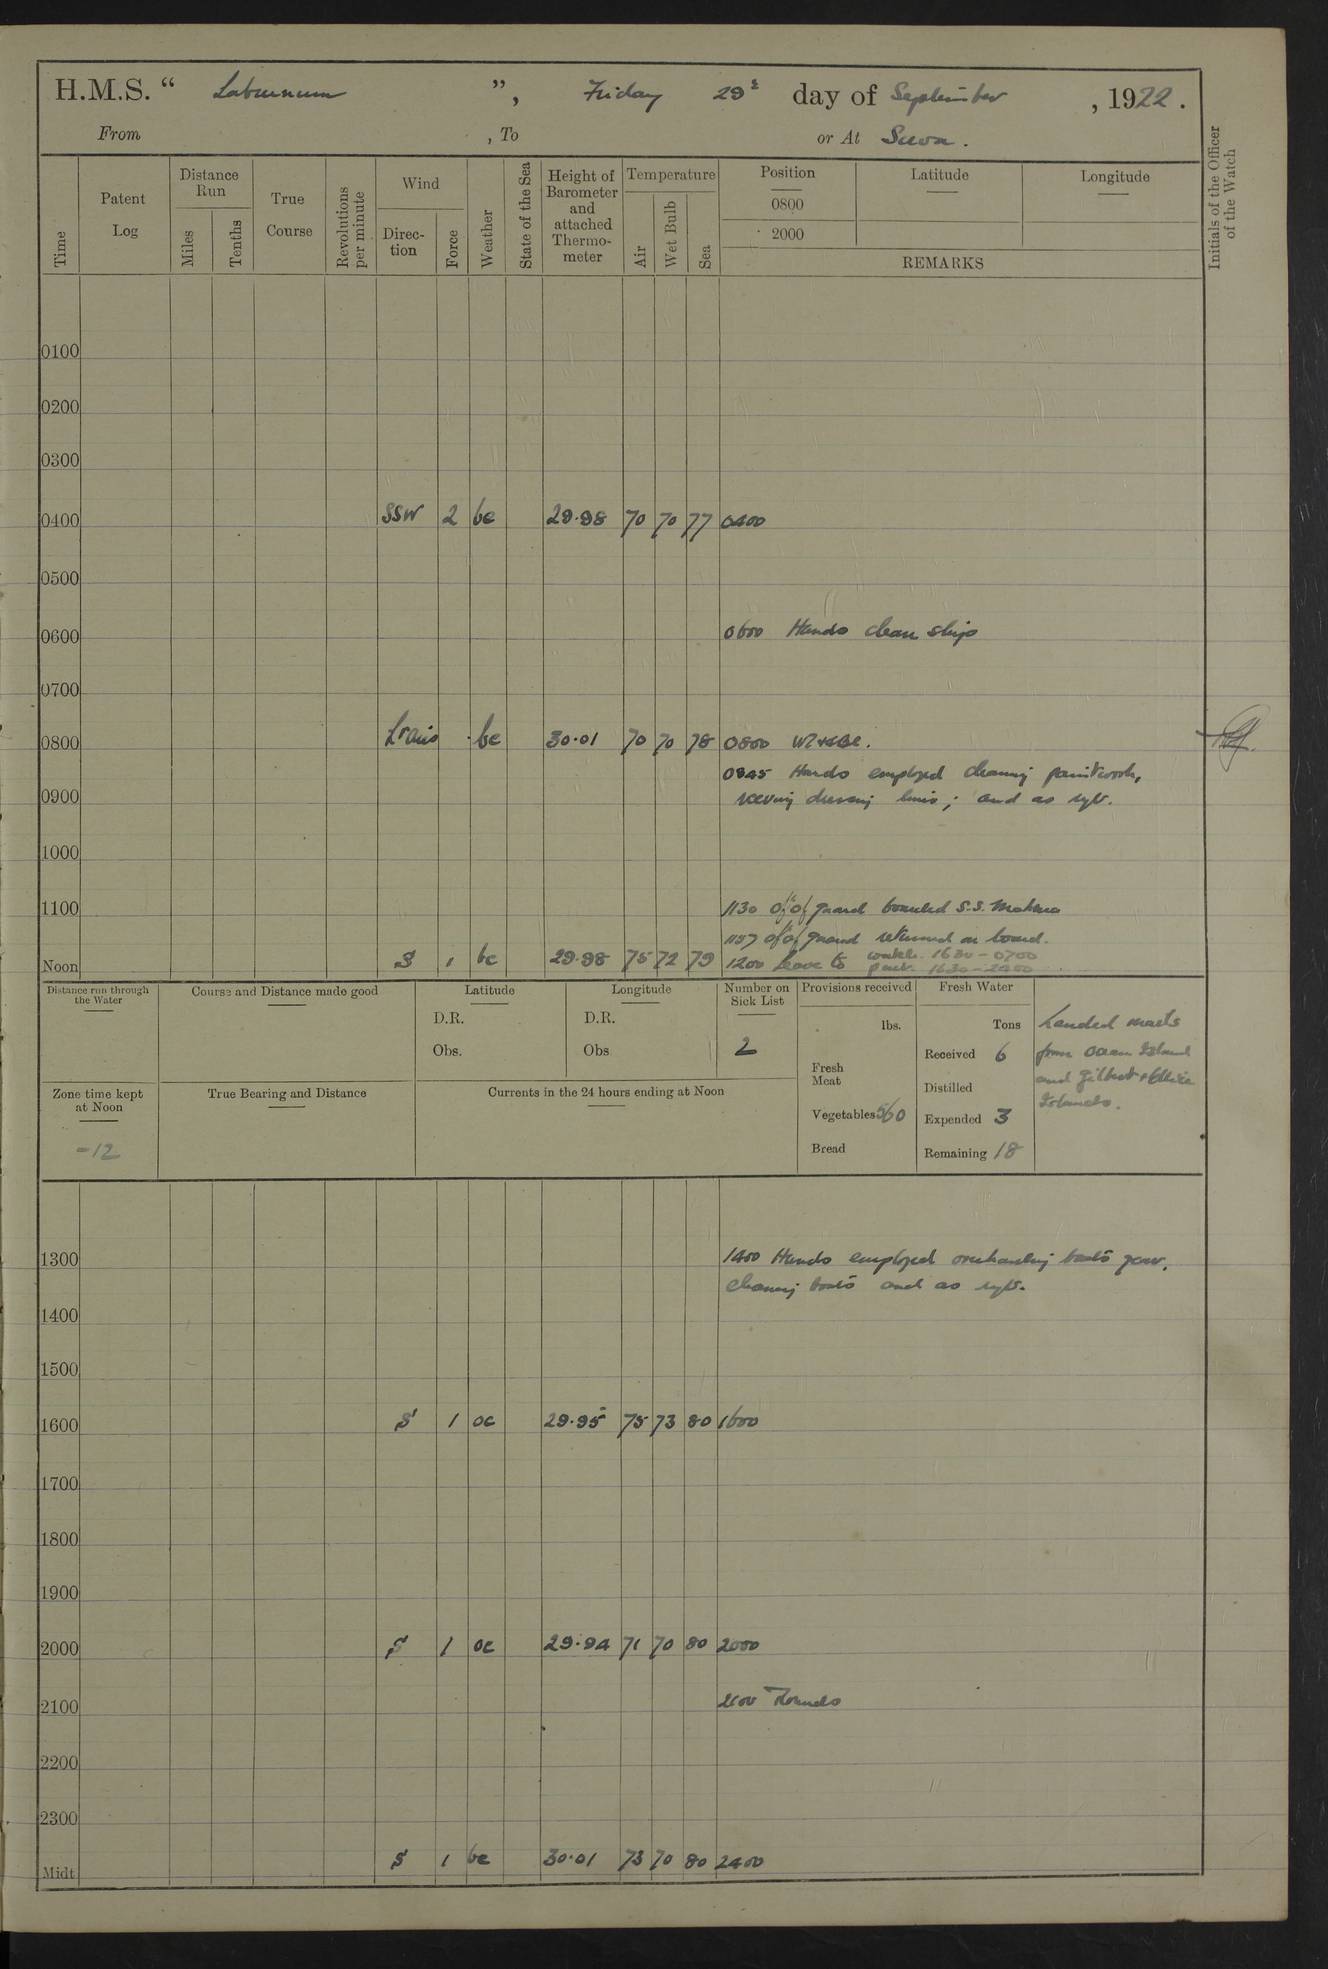 H.M.S. “ Laburnum ”, Friday 29th day of September, 1922.
From , To or At Suva.
Time
Patent Log
Distance Run
Miles
Tenths
True Course
Revolutions per minute
Wind
Direc-tion
Force
Weather
State of the Sea
Height of Barometer and attached Thermo-meter
Temperature
Air
Wet Bulb
Sea
Position
0800
2000
Latitude
Longitude
REMARKS
Initials of the Officer of the Watch
0100
0200
0300
0400 SSW 2 bc 29.98 70 70 77 0400
0500
0600 0600 Hands clean ship
0700
0800 bc 30.01 70 70 78 0800
0845 Hands employed cleaning paintwork,
0900 reeving dressing lines; and as reqt.
1000
1100 1130 Off of guard boarded S.S. Makura
1157 Off of guard returned on board.
Noon S 1 bc 29.98 75 72 79 1200 Leave to watch. 1630 - 0700
part. 1630 - 2200
Distance run through the Water
Course and Distance made good
Latitude
D.R.
Obs.
Longitude
D.R.
Obs
Number on Sick List
2
Provisions received
lbs.
Fresh Meat
Vegetables 560
Bread
Fresh Water
Tons
Received 6
Distilled
Expended 3
Remaining 18
Landed mails
from Ocean Island
and Gilbert & Ellice
Islands.
Zone time kept at Noon
-12
True Bearing and Distance
Currents in the 24 hours ending at Noon
1300 1400 Hands employed overhauling boats gear,
cleaning boats and as reqt.
1400
1500
1600 S 1 oc 29.95 75 73 80 1600
1700
1800
1900
2000 S 1 oc 29.94 71 70 80 2000
2100 2100 Rounds
2200
2300
Midt S 1 bc 30.01 73 70 80 2400